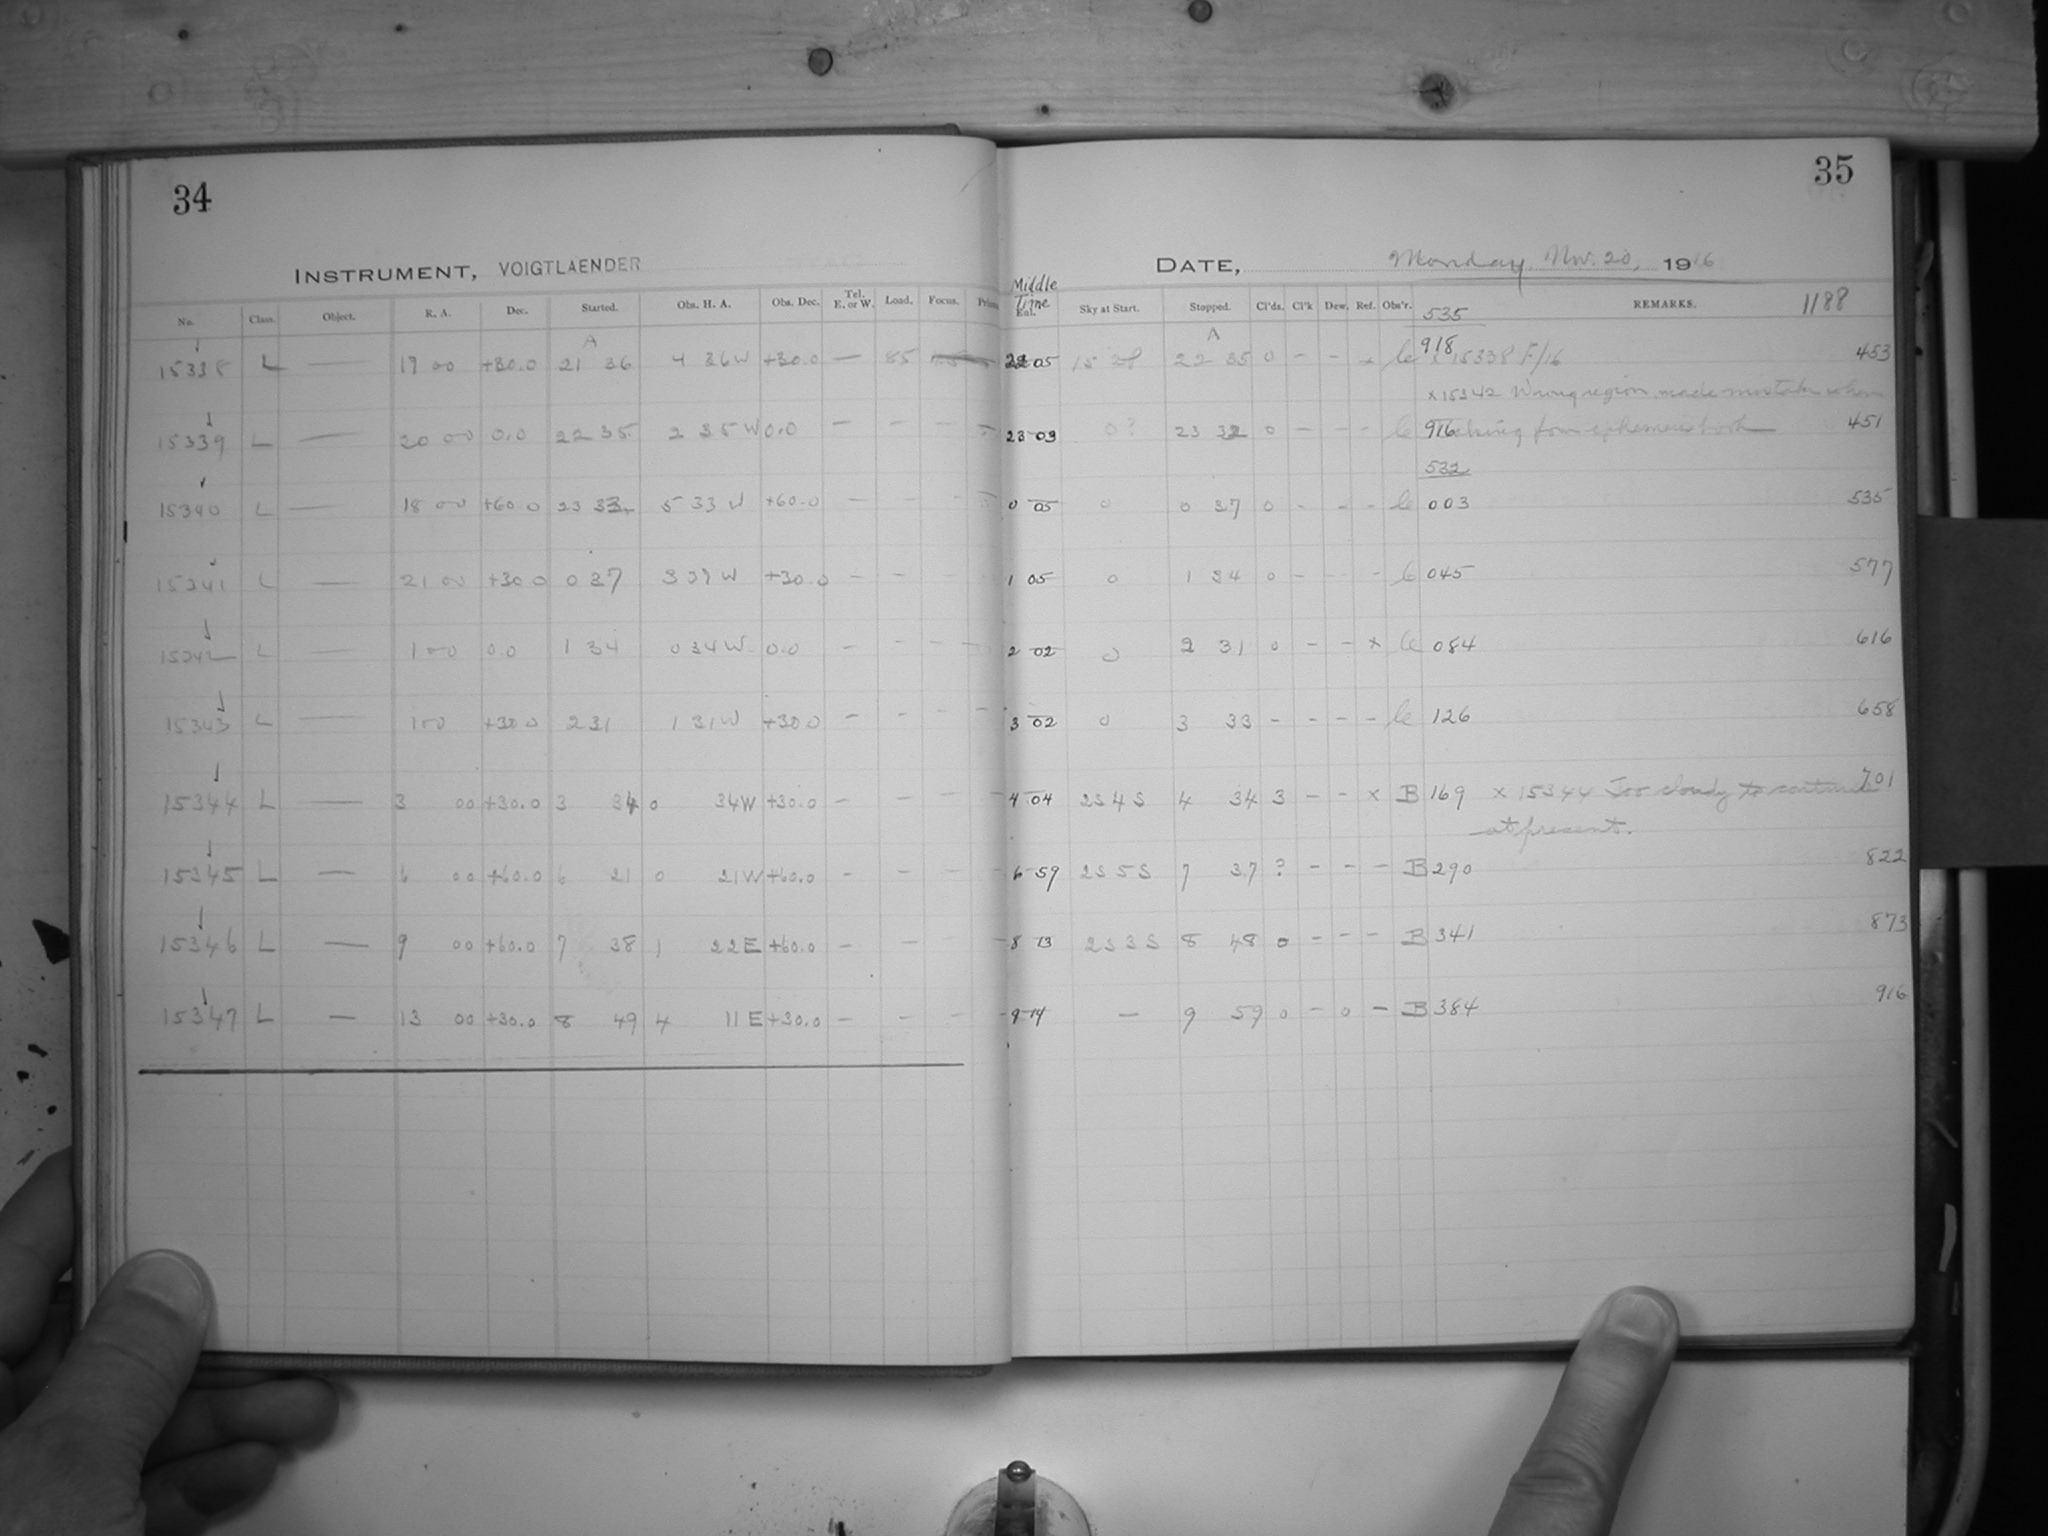 34
INSTRUMENT, VOIGTLAENDER
No. Class. Object. R. A. Dec. Started. Obs. H. A. Obs. Dec. Tel. E. or W. Load. Focus.
A
15338 L — 19 00 +30.0 21 36 4 36W +30.0 — 85
15339 L — 20 00 0.0 22 35 2 35W 0.0 — — —
15340 L — 18 00 +60.0 23 33 5 33W +60.0 — — —
15341 L — 21 00 +30.0 0 37 3 37W +30.0 — —
15342 L — 1 00 0.0 1 34 0 34W 0.0 — — — —
15343 L — 1 00 +30.0 2 31 1 31W +30.0 — — — —
15344 L — 3 00 +30.0 3 34 0 34W +30.0 — — — —
15345 L — 6 00 +60.0 6 21 0 21W +60.0 — — — —
15346 L — 9 00 +60.0 7 38 1 22E +60.0 — — — —
15347 L — 13 00 +30.0 8 49 4 11E +30.0 — — — —
35
DATE, Monday, Nov. 20, 1916
Middle Time
Ent. Sky at Start. Stopped. Cl'ds. Cl'k Dew. Ref. Obs'r. REMARKS. 1188
535
A
22 05 22 35 0 — — x le 918 x 15338 F/16 453
x 15342 Wrong region, made mistake when
23 03 0? 23 32 0 — — — le 916 taking from ephemeris book 451
532
0 05 0 0 37 0 - - - le 003 535
1 05 0 1 34 0 - - le 045 577
2 02 0 2 31 0 - - x le 084 616
3 02 0 3 33 - - - - le 126 658
4 04 2S4S 4 34 3 - - x B 169 x 15344 Too cloudy to continue 701
at present.
6 59 2S5S 7 37 ? - - - B 290 822
8 13 2S3S 8 48 0 - - - B 341 873
9 14 — 9 59 0 - 0 - B 384 916